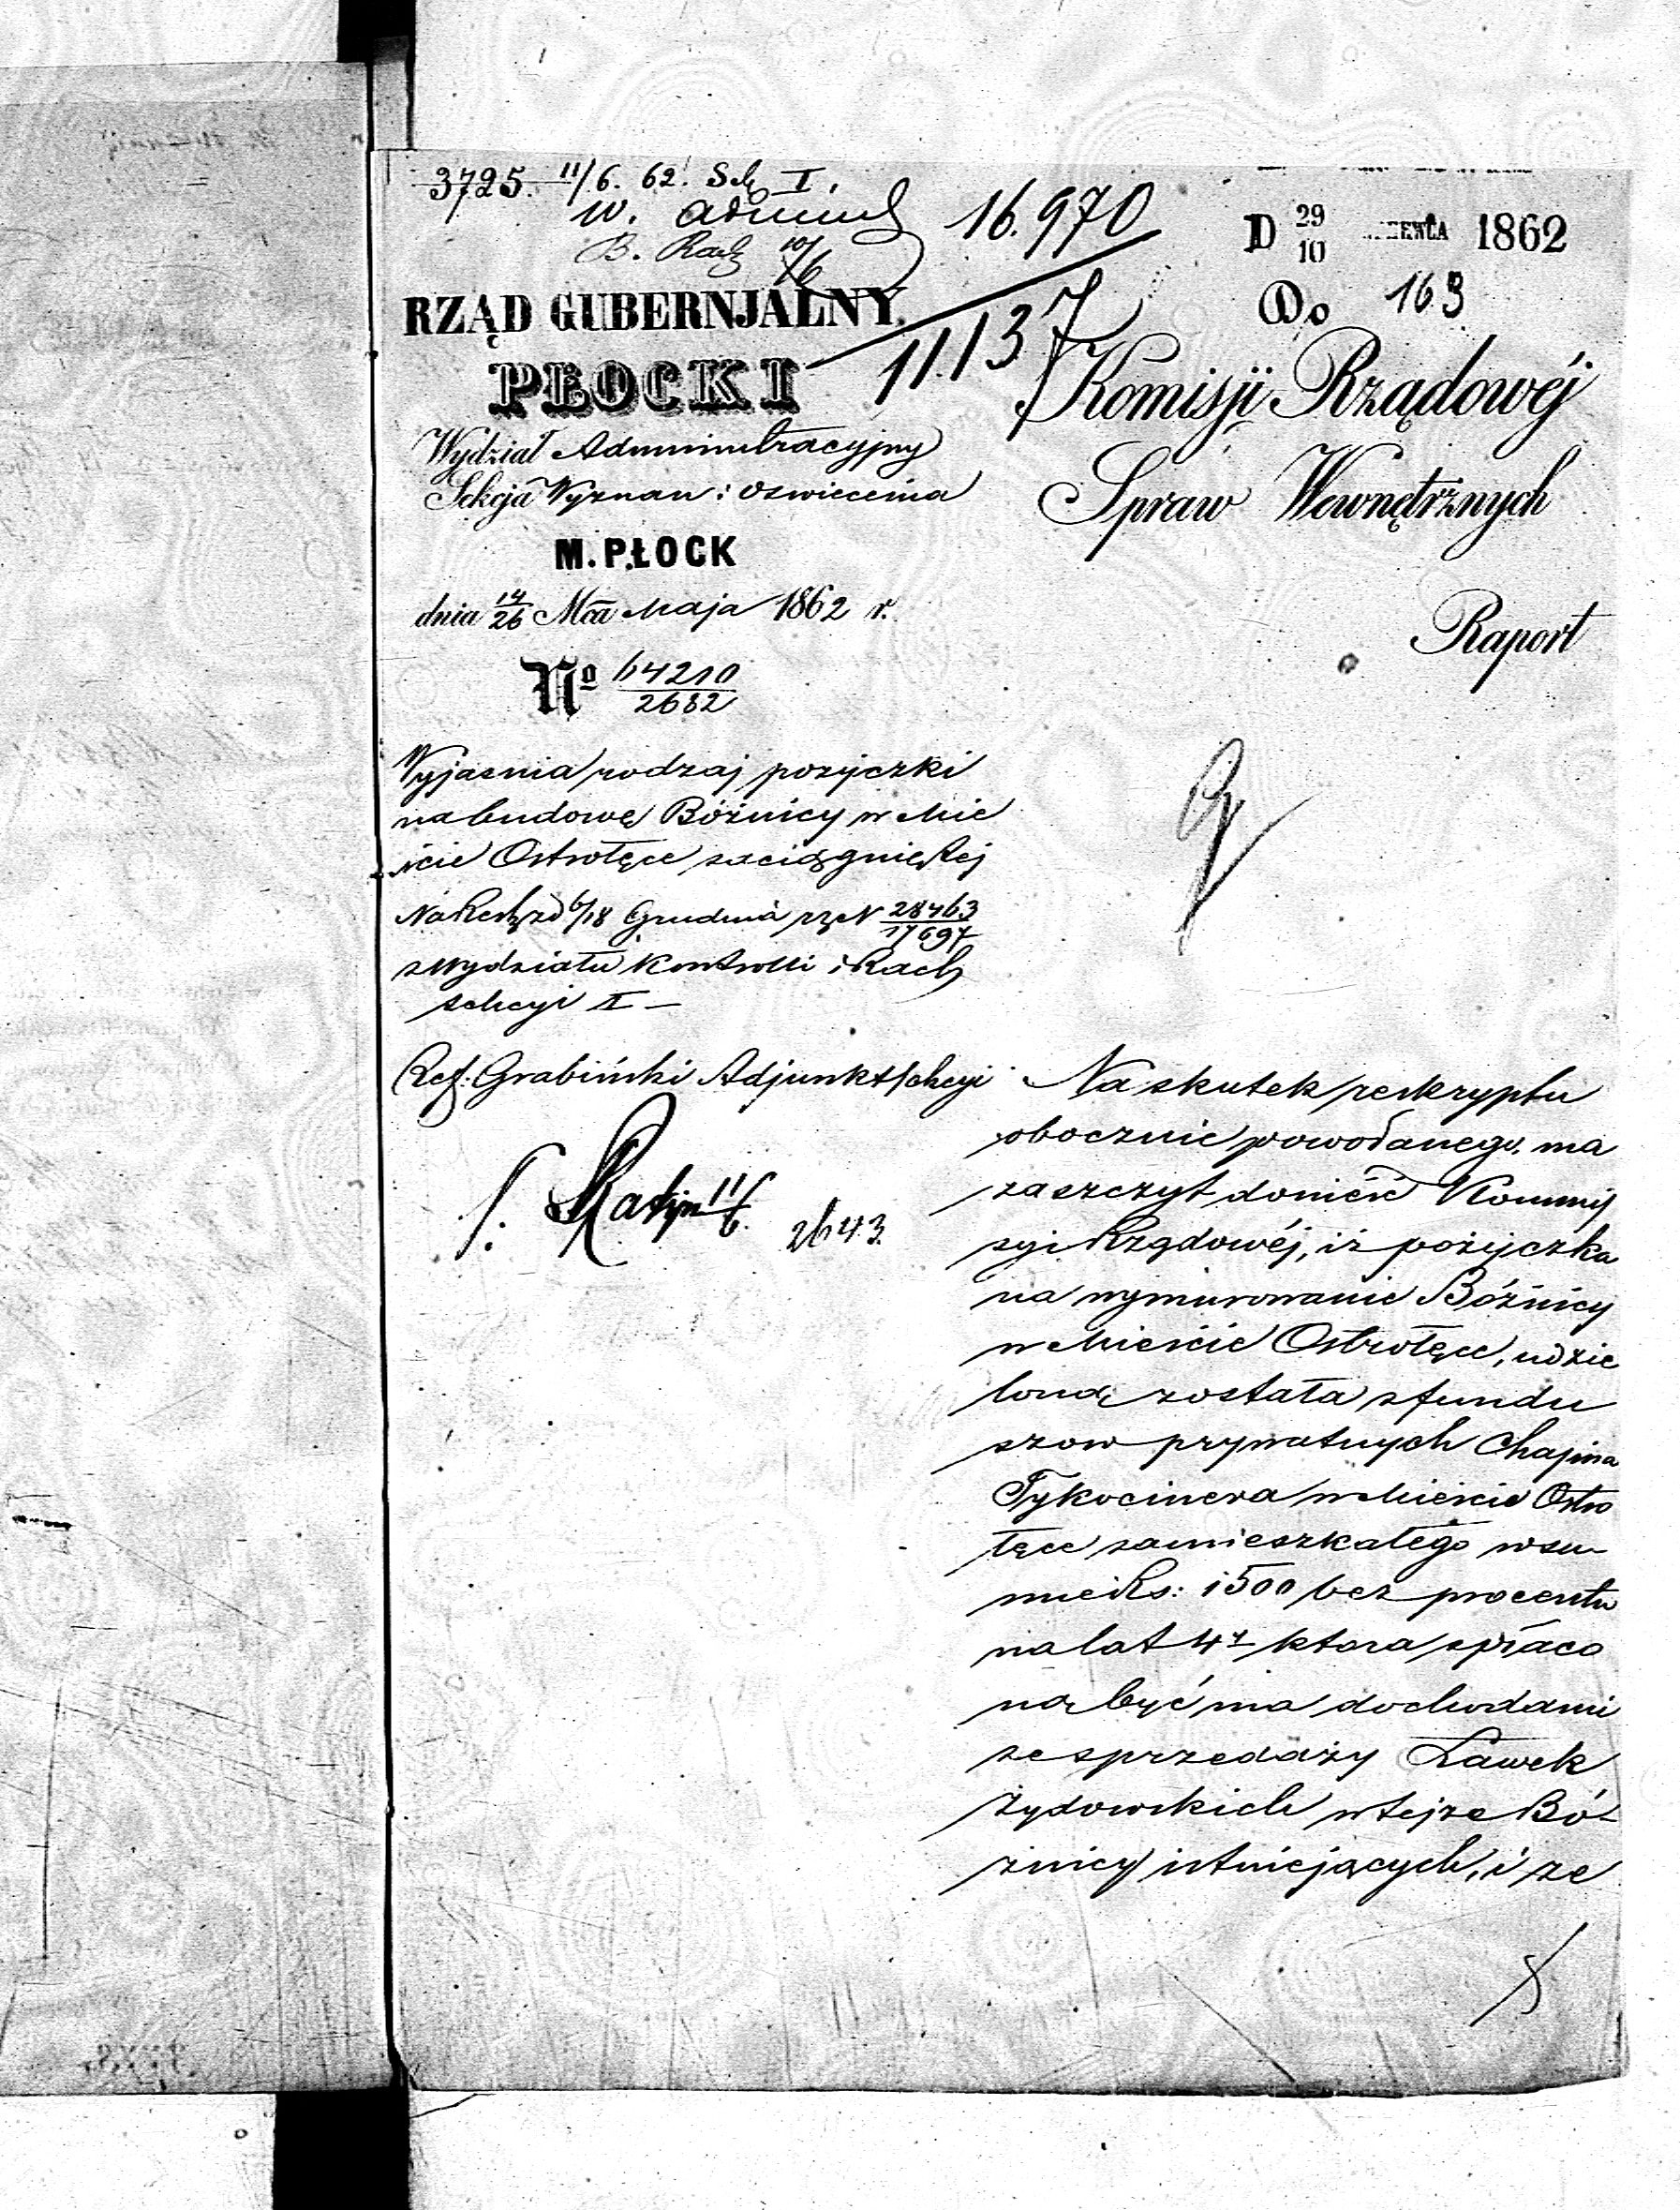 3725 11/6. 62. Sek I.
W. Admin
B. Rach 10/6
16.970
11137
D 29/10 CZERWCA 1862
169
RZĄD GUBERNJALNY
PŁOCKI
Wydział Administracyjny
Sekcja Wyznań i Oswiecenia
M. PŁOCK
dnia 14/26 Mca Maja 1862 r.
Nº 64210/2682
Do
Komisji Rządowéj
Spraw Wewnętrznych
Raport
Wyjasnia rodzaj pozyczki
na budowę Bóżnicy w Mie
ście Ostrołęce zaciągniętej
Na Resk zd 6/18 Grudnia rz N 28463/17697
z Wydziatu Kontrolli i Rach
sekcyi II —
Ref: Grabiński Adjunkt sekcyi
11/6. 2643.
Na skutek reskryptu
obocznie powołanego, ma
zaszczyt donieść Kommis
syi Rządowéj, iż pożyczka
na wymurowanie Bóżnicy
w Mieście Ostrołęce, udzie
loną została z fundu
szow prywatnych Chaima
Tykocinera w Mieście Ostro
łęce zamieszkałego w su-
mie Rs: 1500 bez procentu
na lat 4y ktora spłaco
ną być ma dochodami
ze sprzedaży Ławek
żydowskich w tejże Bó-
żnicy istniejących, i ze